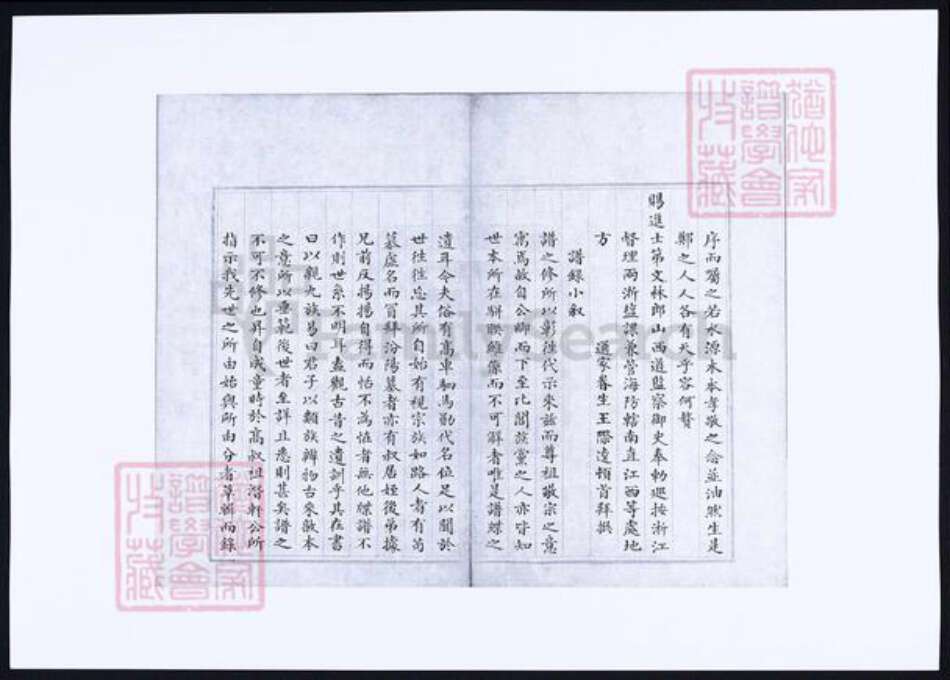 序而屬之若水源木本孝敬之念並油然生是
鄭之人人各有天乎容何贅
賜進士第文林郎山西道監察御史奉勅巡按浙江
督理兩浙鹽課兼管海防轄南直江西等處地
方
通家眷生王際逵頓首拜撰
譜錄小叙
譜之修所以彰往代示來茲而尊祖敬宗之意
寓焉故自公卿而下至比閭族黨之人亦皆知
世本所在聯睽雖縻而不可解者唯是譜牒之
遺耳今夫俗有高車駟馬勛代名位足以聞於
世往往忘其所自始有視宗族如路人者有苟
慕虛名而冒拜汾陽墓者亦有叔居姪後弟據
兄前反揚揚自得而恬不為怪者無他牒譜不
作則世系不明耳盍觀古昔之遺訓乎其在書
曰以親九族易曰君子以類族辨物古來敦本
之意所以垂範後世者至詳且悉則甚矣譜之
不可不修也昇自成童時於高叔祖潛軒公所
指示我先世之所由始與所由分者草輯而錄
猶他家
譜學會
收藏
猶他家
譜學會
收藏
FamilySearch